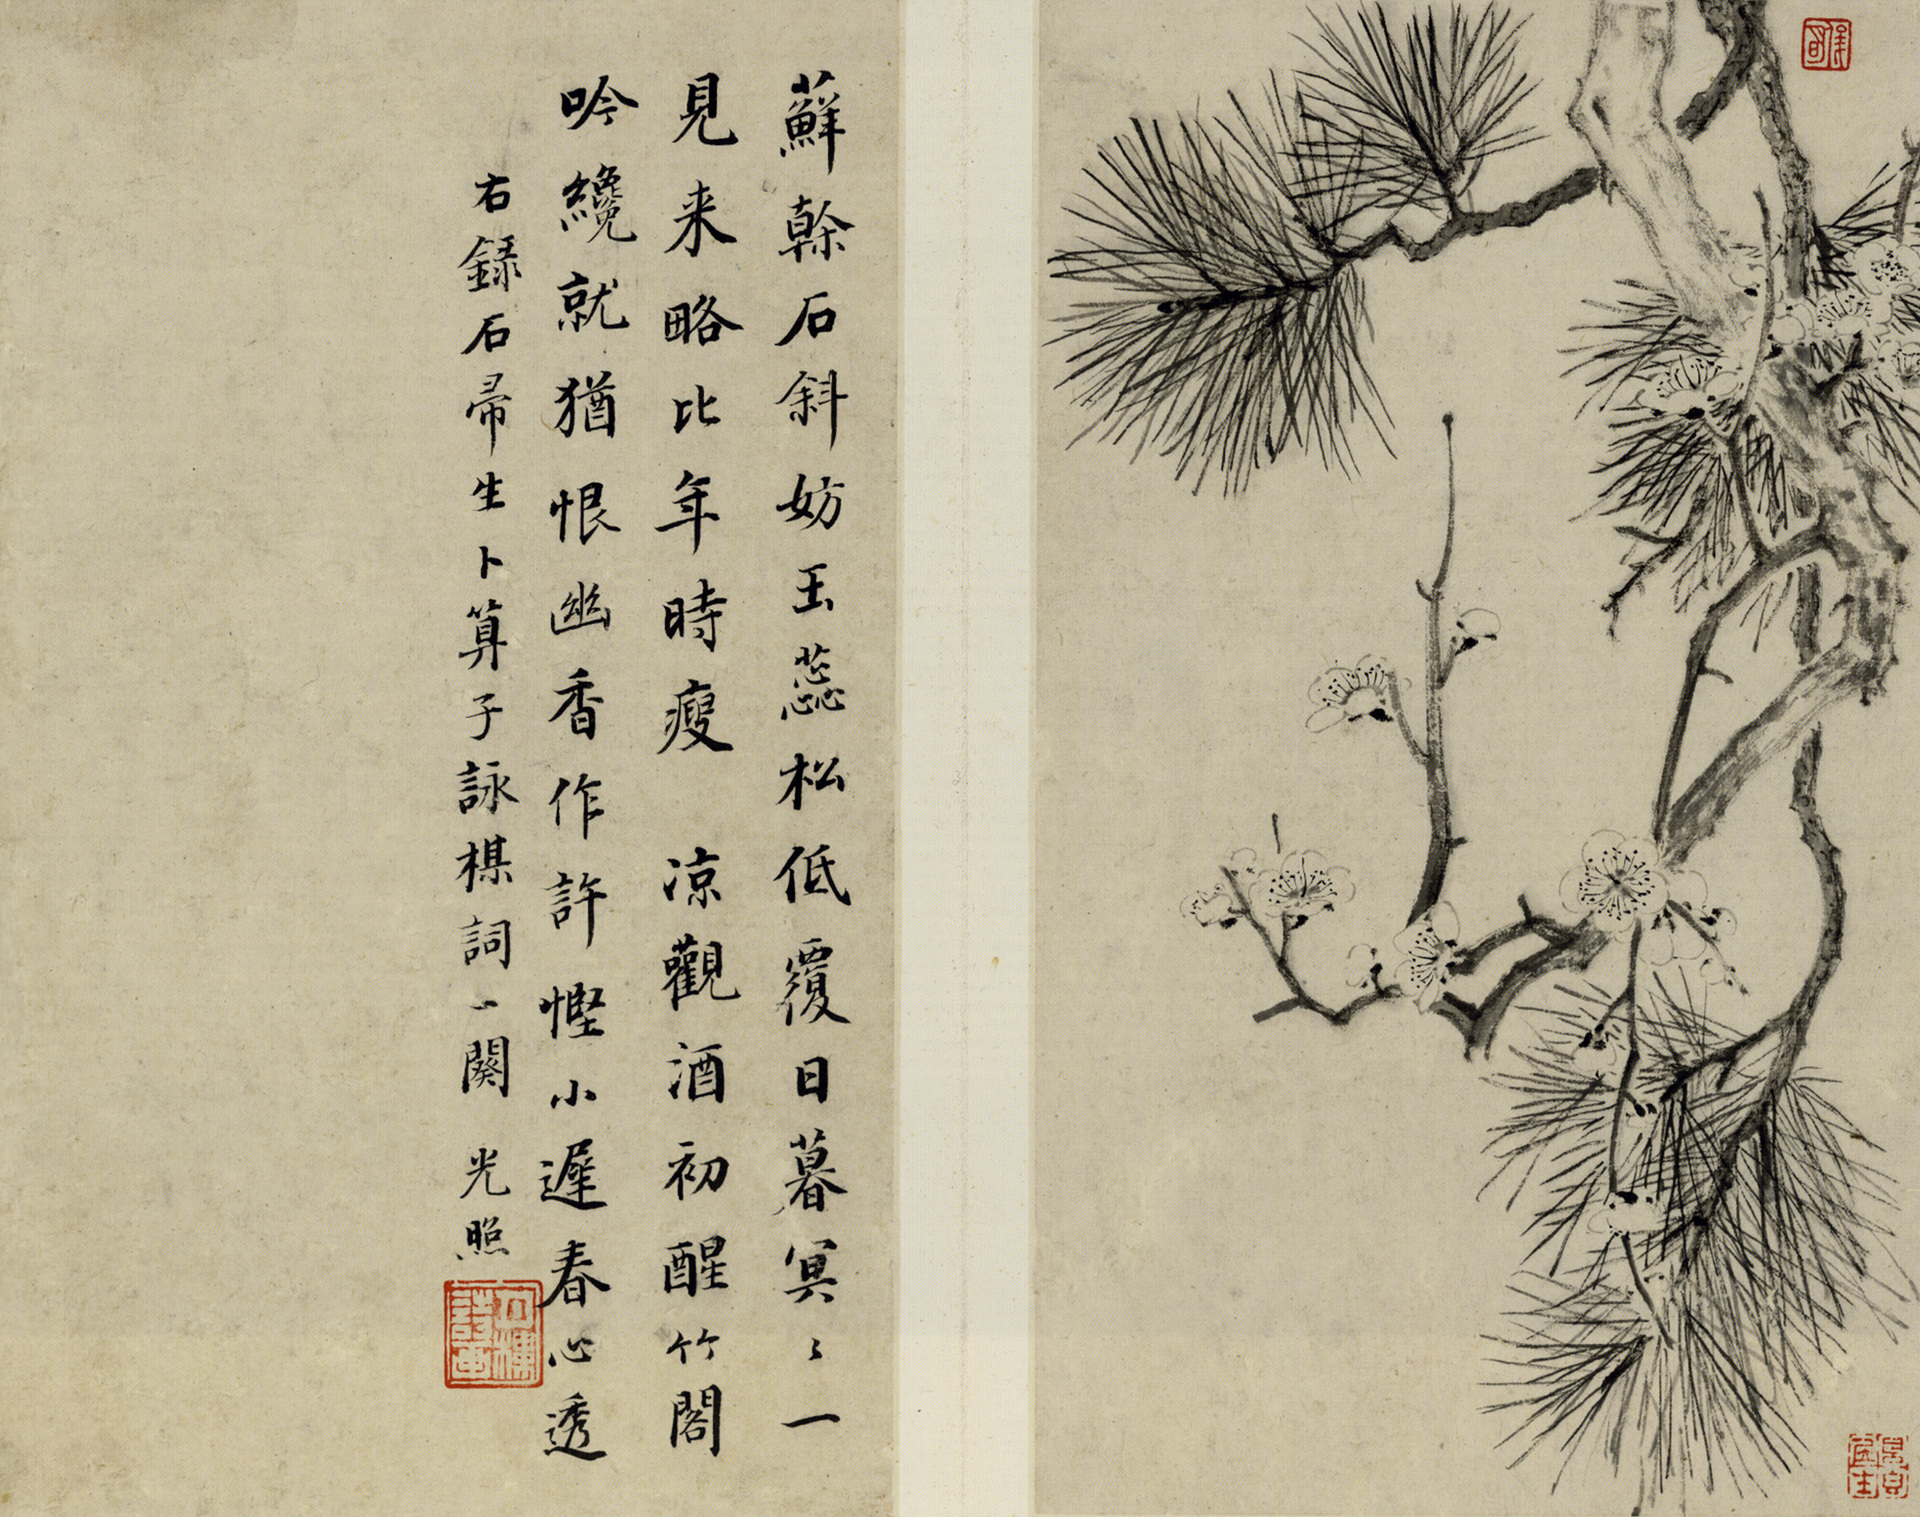 蘚榦石斜妨玉蕊松低覆日暮冥〻一
見来略比年時瘦　凉觀酒初醒竹閣
吟纔就猶恨幽香作許慳小遲春心透
右録石帚生卜算子詠楳詞一闋　光照